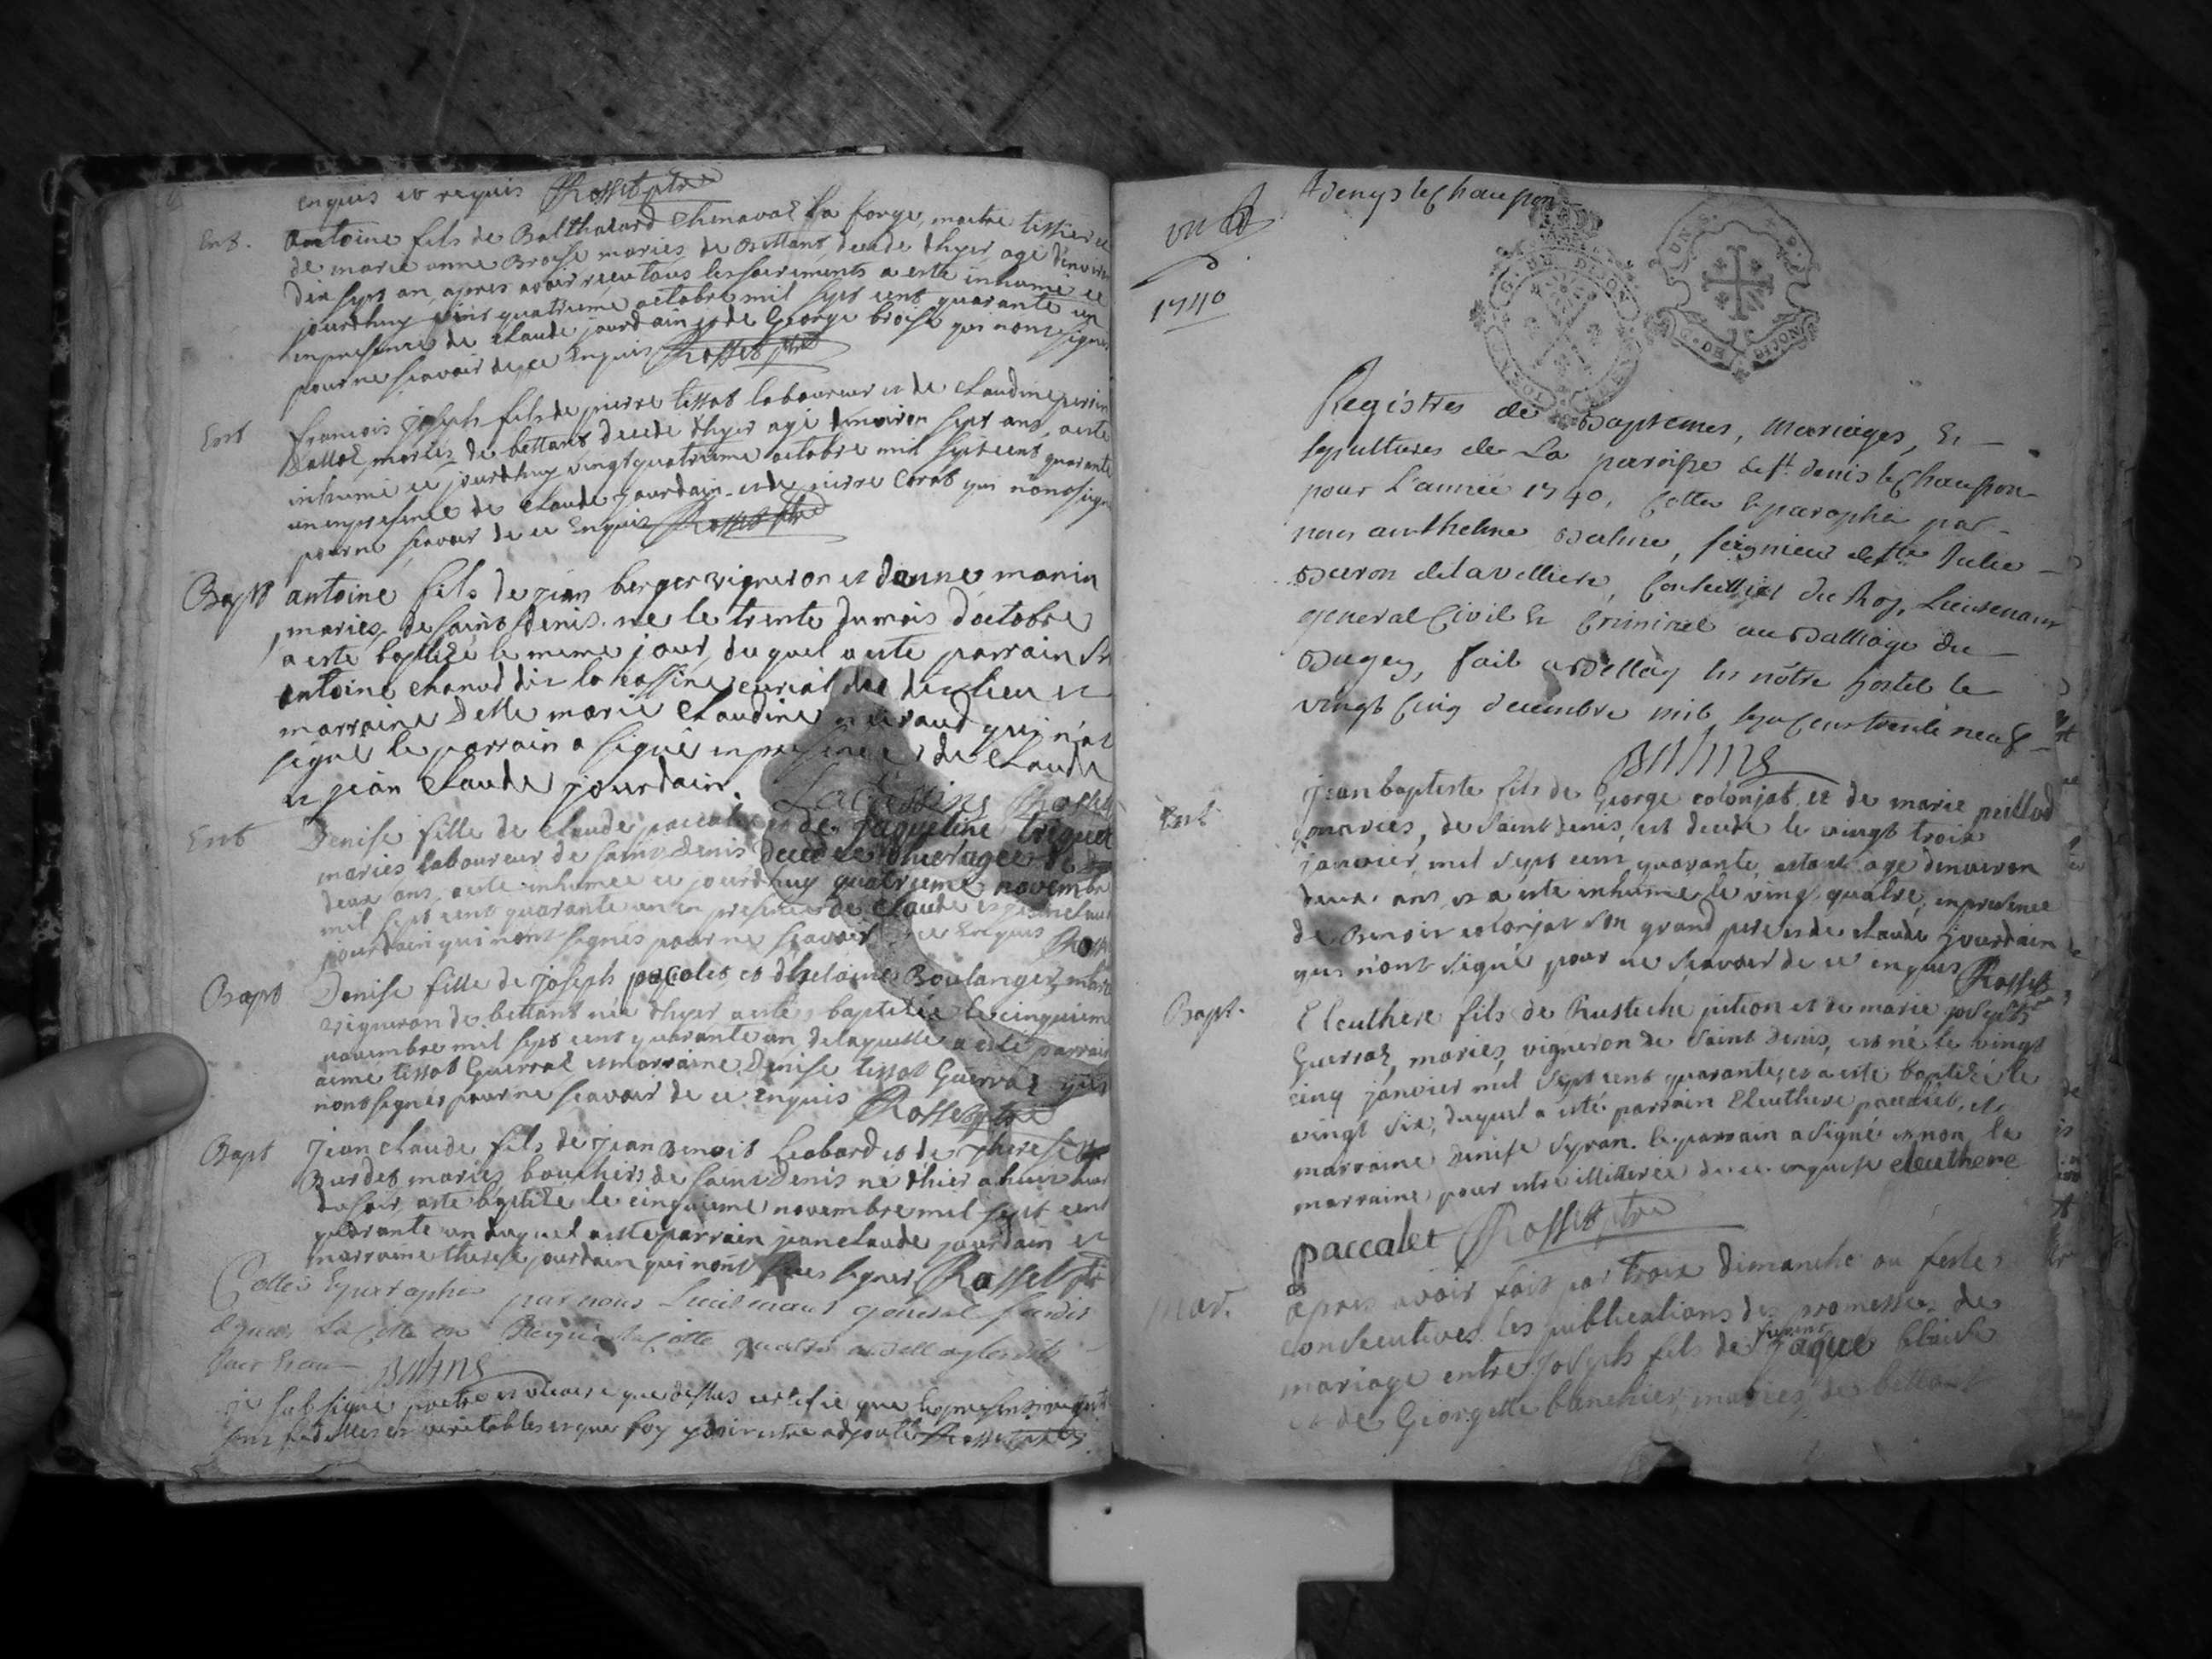 enquis et requis Rosset ptre
Ent. antoine fils de Balthazard chenavaz la forge, maitre tissier et
de marie anne Broise mariés de Bettant, decede d'hyer, agé d'environ
dix sept an, apres avoir receu tous les sacrements a esté inhumé ce
jourdhuy vint quatrieme octobre mil sept cent quarante un
en presence de claude jourdain et de George broise qui n'ont signé
pour ne scavoir de ce enquis Rosset ptre
Ent francois joseph fils de pierre tissot laboureur et de claudine
mariés de bettant decede d'hyer agé d'environ sept ans, a esté
inhumé ce jourdhuy vingt quatrieme octobre mil sept cent quarante
un en presence de claude jourdain et de pierre Corat qui n'ont signé
pour ne scavoir de ce enquis Rosset ptre
Bapt antoine fils de jean berger vigneron et d'anne monin
mariés de saint denis né le trente du mois d'octobre
a esté baptizé le meme jour, duquel a esté parrain Sr
antoine chanud dit la cassine curial du dit lieu et
marraine Delle marie Claudine qui n'at
signé le parrain a signé en presence de Claude
et jean Claude jourdain. Lacassine Rosset
Ent Denise fille de claude paccalet et de jaqueline triquet
mariés laboureur de saint denis decedée d'hier agée de
deux ans, a esté inhumée ce jourdhuy quatrieme novembre
mil sept cent quarante un en presence de Claude et jean claude
jourdain qui n'ont signés pour ne scavoir de ce enquis Rosset
Bapt Denise fille de joseph pacalet et d'helaine Boulanger, mariés
vigneron de bettant née d'hyer a esté baptizée le cinquieme
novembre mil sept cent quarante un, de laquelle a esté parrain
aimé tissot Guerraz et marraine Denise tissot Guerraz qui
n'ont signés pour ne scavoir de ce enquis Rosset ptre
Bapt jean claude fils de jean Benoit Leobard et de therese
Burdet mariés bouchers de saint denis né d'hier a huit heure
du soir, a esté baptizé le cinquieme novembre mil sept cent
quarante un duquel a esté parrain jean claude jourdain et
marraine therese jourdain qui n'ont sceu signer Rosset ptre
Cottés et paraphés par nous Lieutenant general susdit
Balme
je sub signé prêtre et vicaire que dessus certifie que les presents registres
sont fidelles et veritables et que foy y doit estre adjoutée Rosset ptre
St denys le Chausson
un
1740
Registres de Baptemes, Mariages, Et
sepultures de La paroisse de St. denis le Chausson
pour L'année 1740, Cottés et paraphés par
nous anthelme Balme, seigneur de Ste Julie
Baron de la velliere, Conseillier du Roy, Lieutenant
general Civil Et Criminel au Balliage du
Bugey, fait a Belley en nôtre hostel le
vingt Cinq decembre mil sept Cens trente neuf
Balme
Ent jean baptiste fils de George colonjat et de marie peillod
mariés, de saint denis, est decedé le vingt trois
janvier, mil sept cent quarante, estant agé d'environ
deux ans, et a esté inhumé le vingt quatre, en presence
de Benoit colonjat son grand pere et de claude jourdain
qui n'ont signé pour ne scavoir de ce enquis Rosset
Bapt. Eleuthere fils de Eusteche pition et de marie joseph
Guerraz, mariés, vigneron de saint denis, est né le vingt
cinq janvier mil sept cent quarante, et a esté baptizé le
vingt six, duquel a esté parrain Eleuthere paccalet, et
marraine Denise Syran. le parrain a signé et non la
marraine pour estre illitterée de ce enquise eleuthere
paccalet Rosset ptre
Mar. apres avoir fait par trois dimanche ou feste
consecutives les publications des promesses de
mariage entre joseph fils de furent jaque blaise
et de Georgette banchier, mariés de bettant